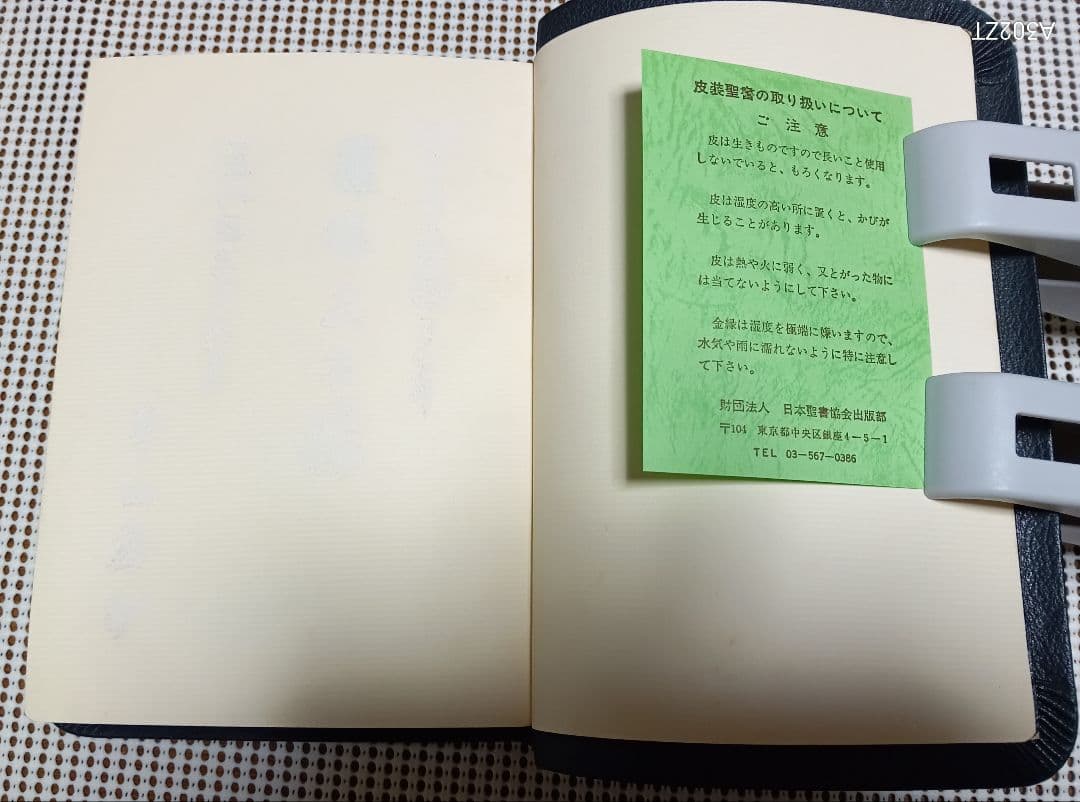 皮装聖書の取り扱いについて
ご注意
皮は生きものですので長いこと使用
しないでいると、もろくなります。
皮は湿度の高い所に置くと、かびが
生じることがあります。
皮は熱や火に弱く、又とがった物に
は当てないようにして下さい。
金縁は湿度を極端に嫌いますので、
水気や雨に濡れないように特に注意し
て下さい。
財団法人 日本聖書協会出版部
〒104 東京都中央区銀座4-5-1
TEL 03-567-0386
A302ZT